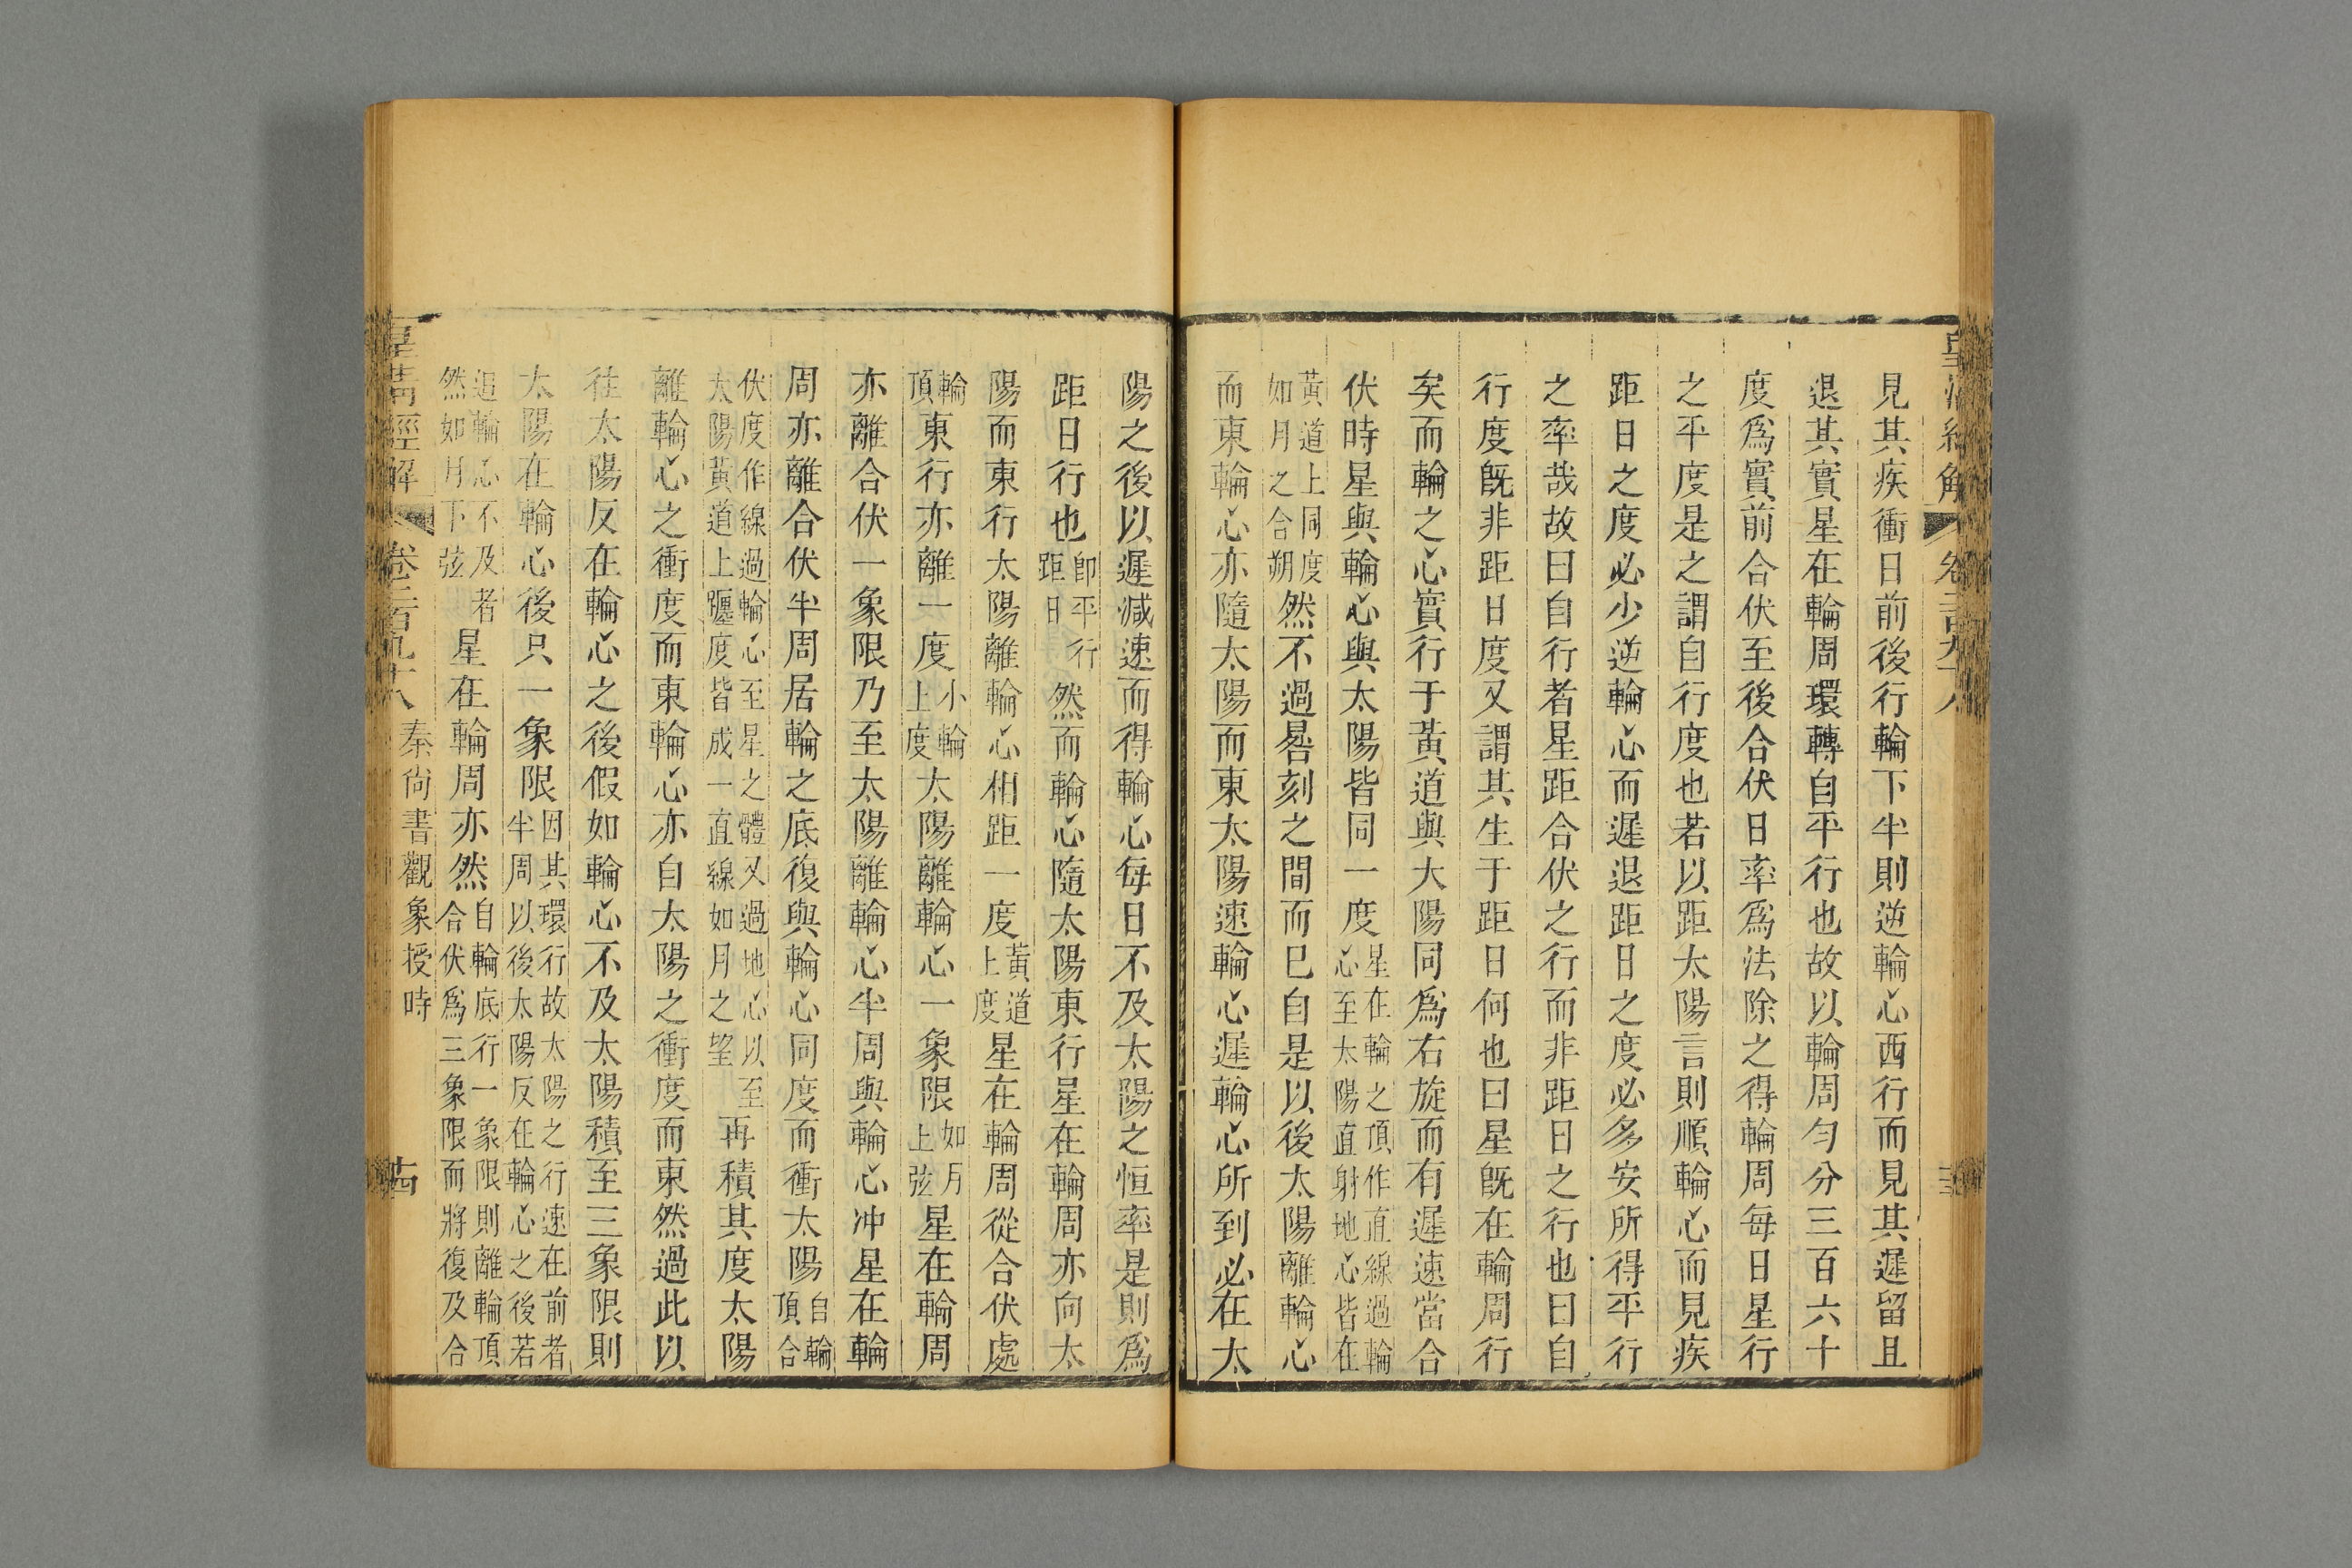 皇清經解 卷二百九十八 十三
見其疾衝日前後行輪下半則逆輪心西行而見其遲留且
退其實星在輪周環轉自平行也故以輪周勻分三百六十
度爲實前合伏至後合伏日率爲法除之得輪周每日星行
之平度是之謂自行度也若以距太陽言則順輪心而見疾
距日之度必少逆輪心而遲退距日之度必多安所得平行
之率哉故曰自行者星距合伏之行而非距日之行也曰自
行度旣非距日度又謂其生于距日何也曰星旣在輪周行
矣而輪之心實行于黃道與大陽同爲右旋而有遲速當合
伏時星與輪心與太陽皆同一度星在輪之頂作直線過輪心至太陽直射地心皆在
黃道上同度如月之合朔然不過晷刻之間而已自是以後太陽離輪心
而東輪心亦隨太陽而東太陽速輪心遲輪心所到必在太
陽之後以遲減速而得輪心每日不及太陽之恒率是則爲
距日行也卽平行距日然而輪心隨太陽東行星在輪周亦向太
陽而東行太陽離輪心相距一度黃道上度星在輪周從合伏處
輪頂東行亦離一度小輪上度太陽離輪心一象限如月上弦星在輪周
亦離合伏一象限乃至太陽離輪心半周與輪心冲星在輪
周亦離合伏半周居輪之底復與輪心同度而衝太陽自輪頂合
伏度作線過輪心至星之體又過地心以至太陽黃道上躔度皆成一直線如月之望再積其度太陽
離輪心之衝度而東輪心亦自太陽之衝度而東然過此以
往太陽反在輪心之後假如輪心不及太陽積至三象限則
太陽在輪心後只一象限因其環行故太陽之行速在前者半周以後太陽反在輪心之後若
追輪心不及者然如月下弦星在輪周亦然自輪底行一象限則離輪頂合伏爲三象限而將復及合
皇清經解 卷二百九十八 秦尚書觀象授時 十四